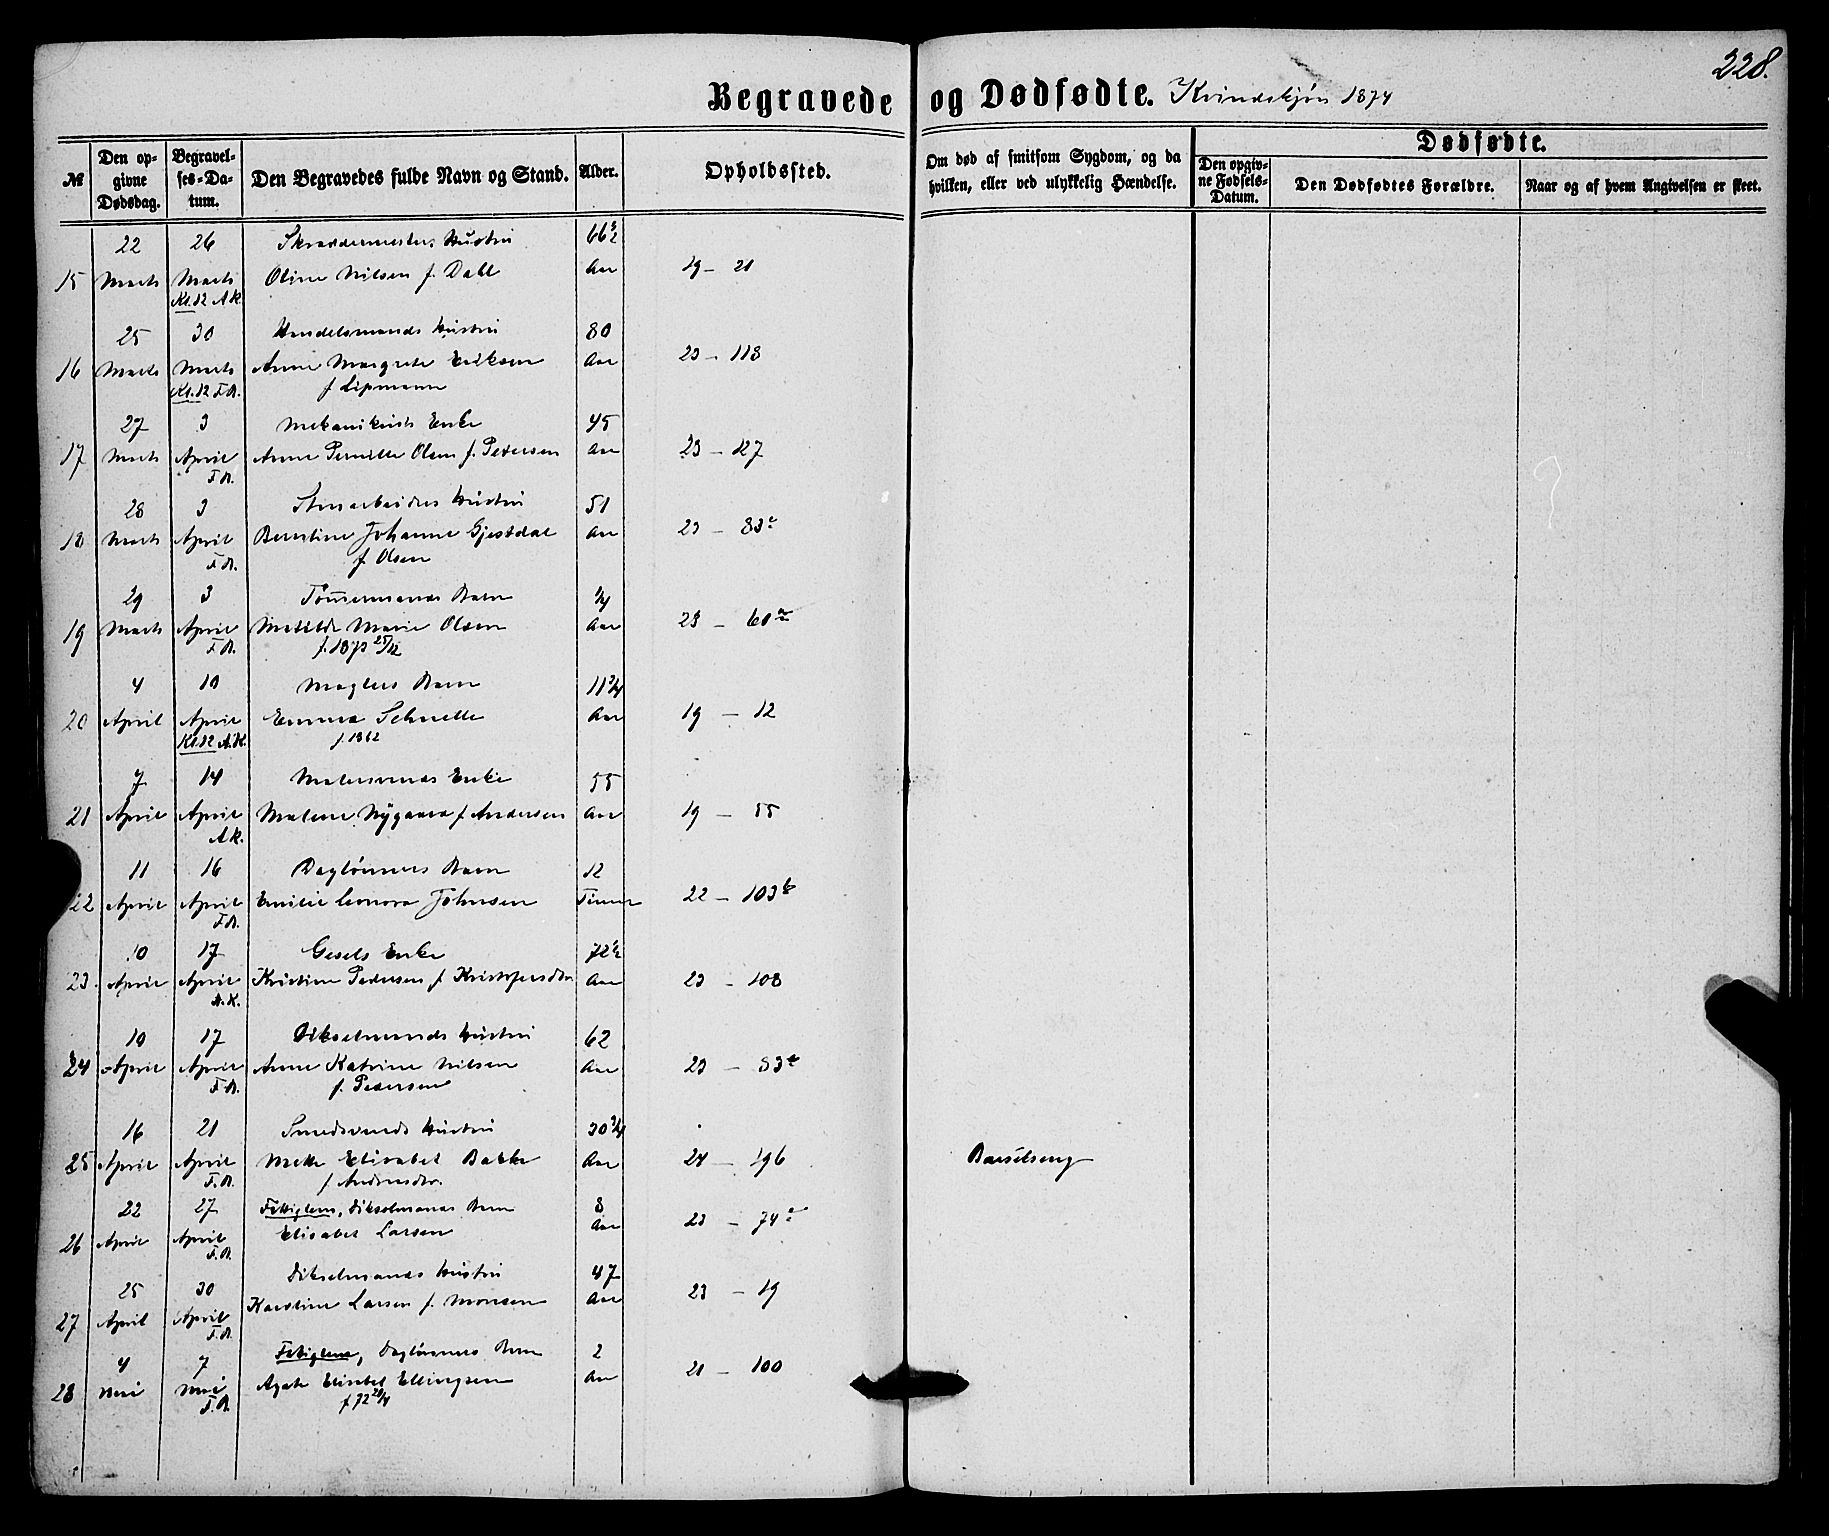 228.
Begravede og Dødfødte. Kvindekjön 1874
№
Den opgivne Dødsdag.
Begravelses-Datum.
Den Begravedes fulde Navn og Stand.
Alder.
Opholdssted.
Om død af smitsom Sygdom, og da hvilken, eller ved ulykkelig Hændelse.
Dødfødte.
Den opgivne Fødsels-Datum.
Den Dødfødtes Forældre.
Naar og af hvem Angivelsen er skeet.
22 26 Skræddermesters Hustru 66½
15 Marts Marts Oline Nilsen f. Dahl Aar 19 - 21
Kl. 12 A K.
25 30 Handelsmands Hustru 80
16 Marts Marts Anne Margrete Eriksen Aar 23 - 113
Kl. 12 F.A. f Lipmann
27 3 Mekanikers Enke 45
17 Marts April Anne Pernille Olsen f. Pedersen Aar 23 - 127
F.A.
28 3 Hustru 51
18 Marts April Berntine Johanne Gjestdal Aar 23 - 83
F.A. f. Olsen
29 3 Tömermands Barn ¼
19 Marts April Matilde Marie Olsen Aar 23 - 60 a
F.A. f. 1873 25/12
4 10 Mæglers Barn 11¾
20 April April Emma Schnelle Aar 19 - 12
Kl. 12 A.K. f. 1862
7 14 Malersvends Enke 55
21 April April Malene Nygaard f Andersen Aar 19 - 55
A K.
11 16 Daglönners Barn 12
22 April April Emilie Leonora Johnsen Timer 22 - 103 b
F.A.
10 17 Enke 72½
23. April April Kristine Pedersen f Kristofersdtr Aar 23 - 108
A.K.
10 17 Sikselmands Hustru 62
24 April April Anne Katrine Nilsen Aar 23 - 83
F.A. f. Pedersen
16 21 Smedsvends Hustru 30¾
25 April April Mette Elisabet Bakke Aar 24 - 196 Barselseng
F.A. f Andersdtr.
22 27 Fattiglem, Sikselmands Barn 8
26 April April Elisabet Larsen Aar 23 - 74 a
F.A.
25 30 Sikselmands Hustru 47
27 April April Karoline Larsen f. Monsen Aar 23 - 19
F.A.
4 7 Fattiglem, Daglönners Barn 2
28 Mai Mai Agate Elisabet Ellingsen Aar 21 - 100
F.A. f 72 28/4